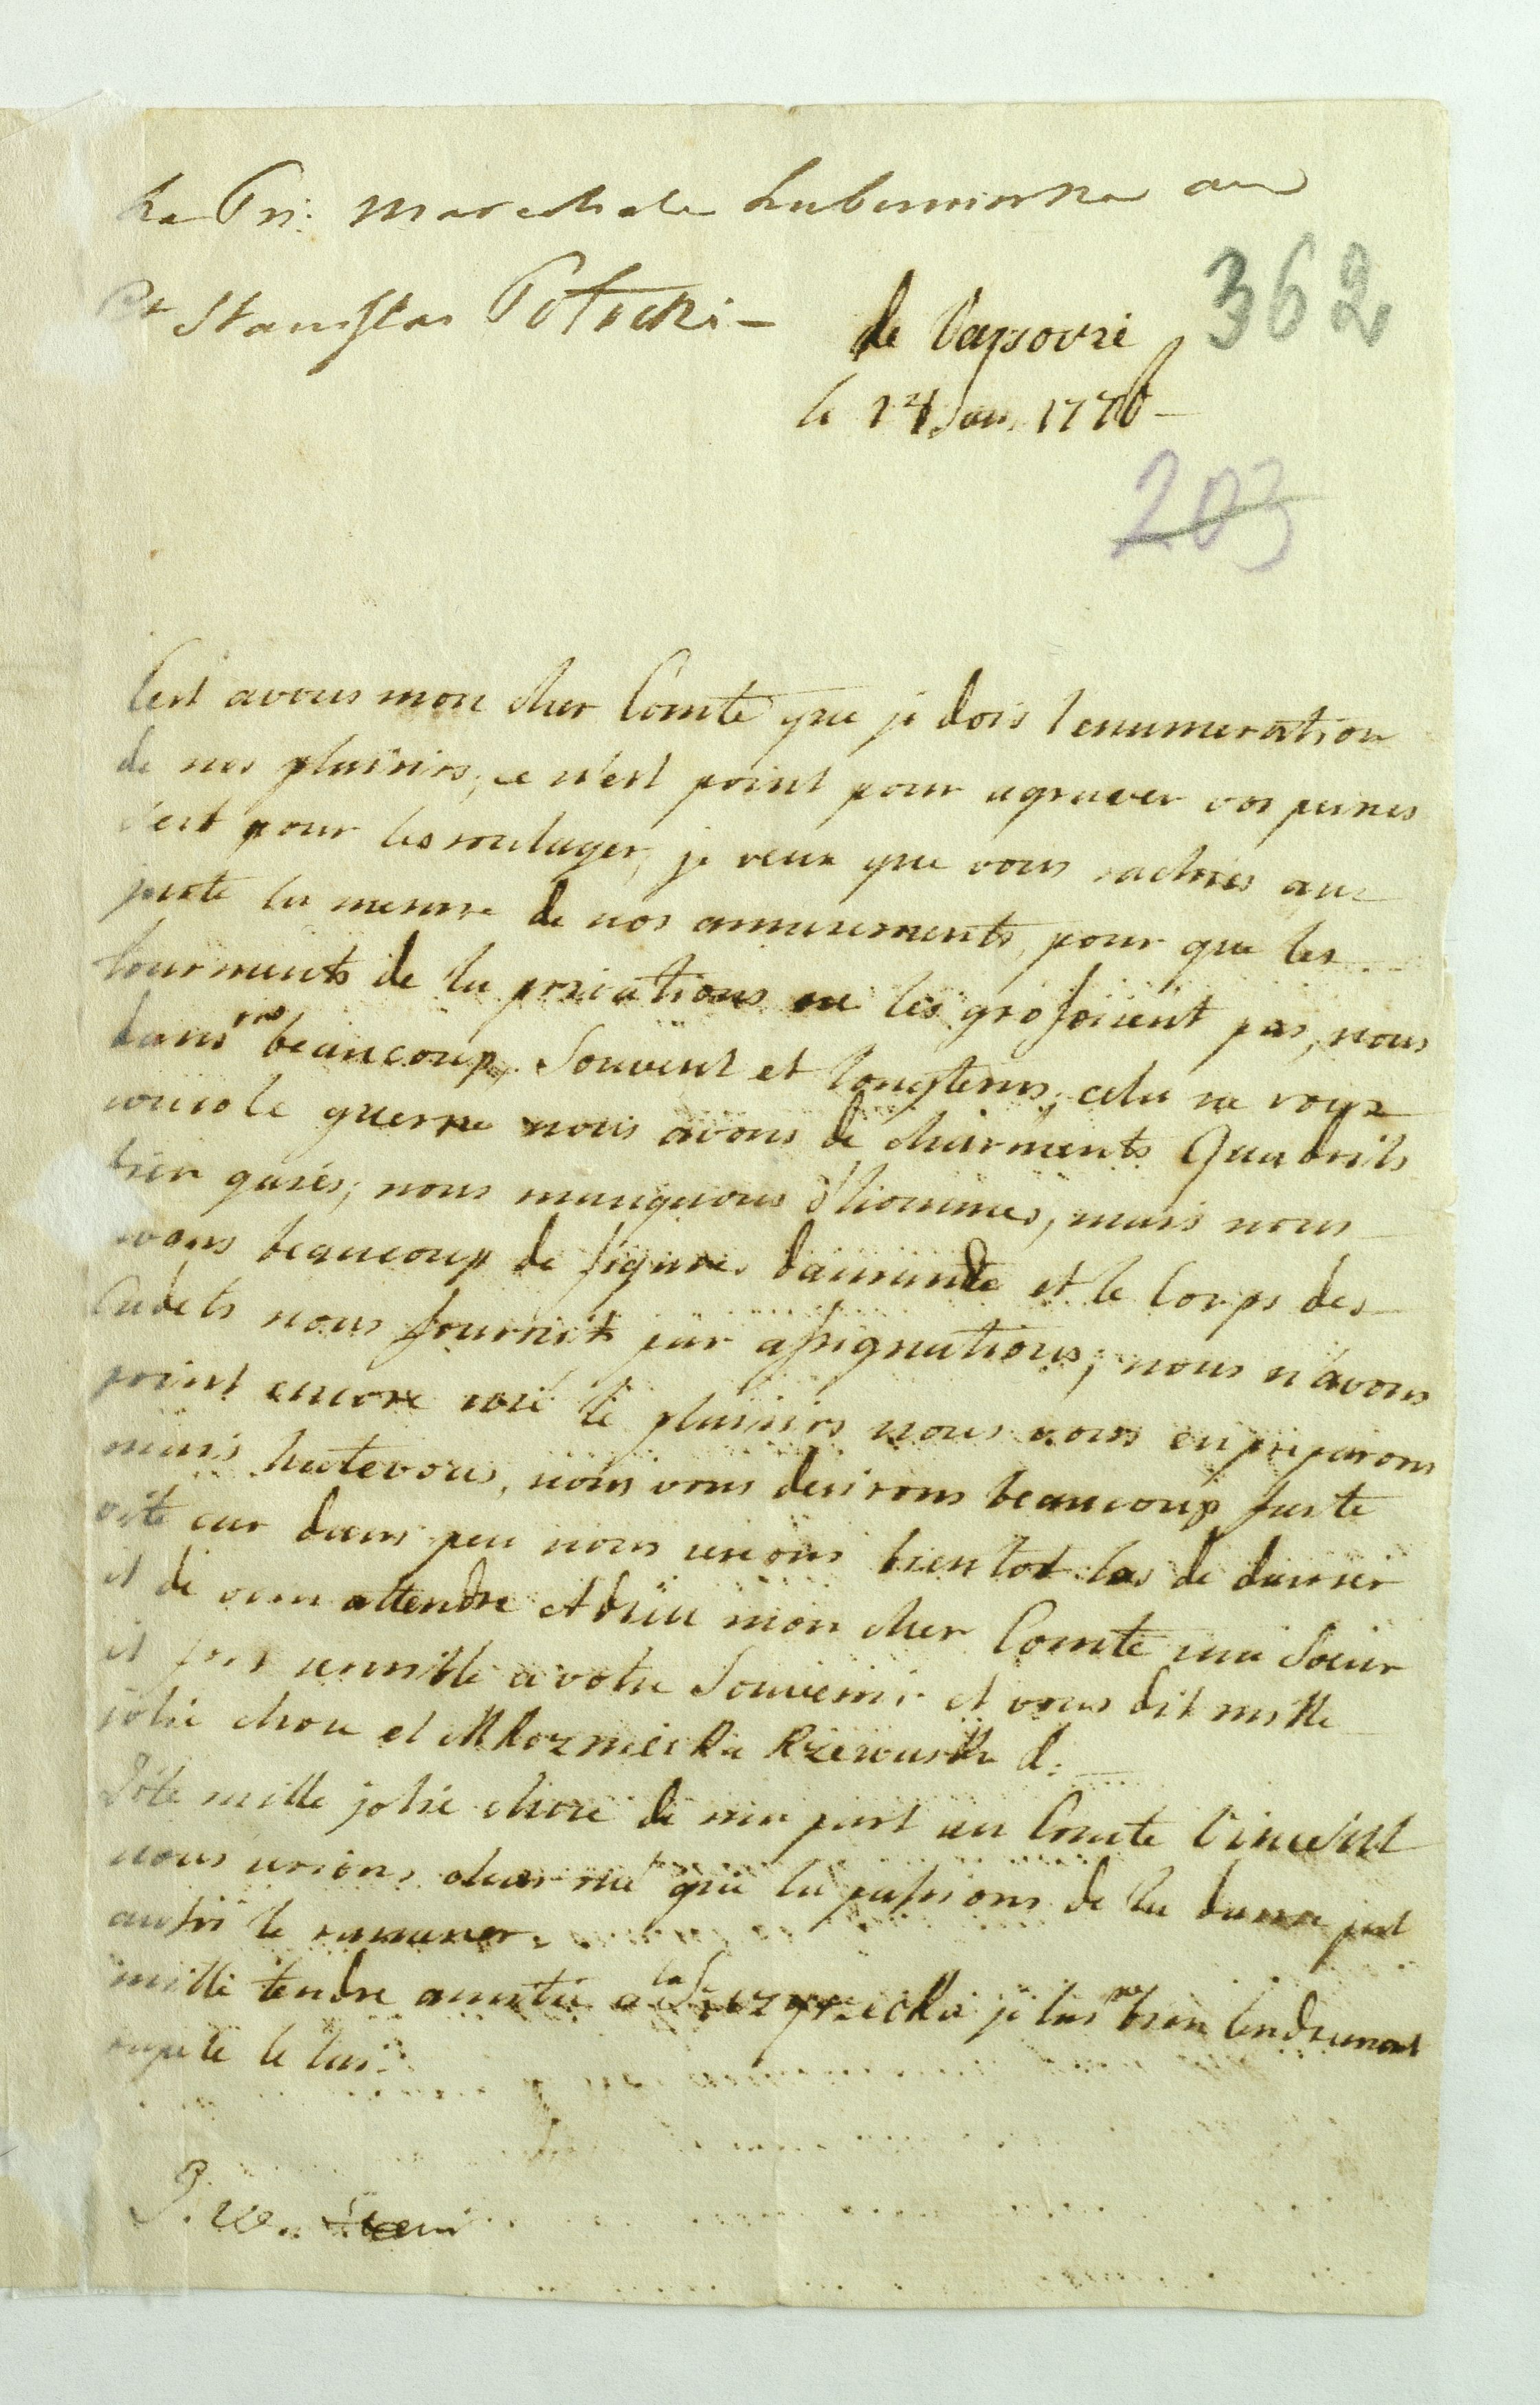 La Pri: Marechale Lubomirska au
Ct Stanislas Potocki -
362
de Varsovie
le 14 Jan. 1776 -
203
C'est avous mon cher Comte que je dois l'enumeration
de nos plaisirs, ce n'est point pour agraver vos peines
c'est pour les soulager, je veux que vous sachiés au
juste la mesure de nos amusements, pour que les
tourments de la privations ne les grossisient pas, nous
dansons beaucoup, souvent et longtems, cela ne vous
console guerre nous avons de charments Quadrils
bien gaiés; nous manquons d'hommes, mais nous
avons beaucoup de figures et le Corps des
Cadets nous fournit par assignations; nous n'avons
point encore de plaisirs nous vous en preparons
mais hatevous, nous vous desirons beaucoup
vite car dans peu nous serions bientot las de danser
et de vous attendre Adieu mon cher Comte ma Soeur
et sensible a votre Souvenir et vous dit mille
jolie chose et Rzewuska d. -
Dite mille jolie chose de ma part au Comte Vincent
nous serions charmé que la passions de la danse put
aussi le ramener.
mille tendre amitie a la je l'es bien tendrement
repete le lui.
P. W.